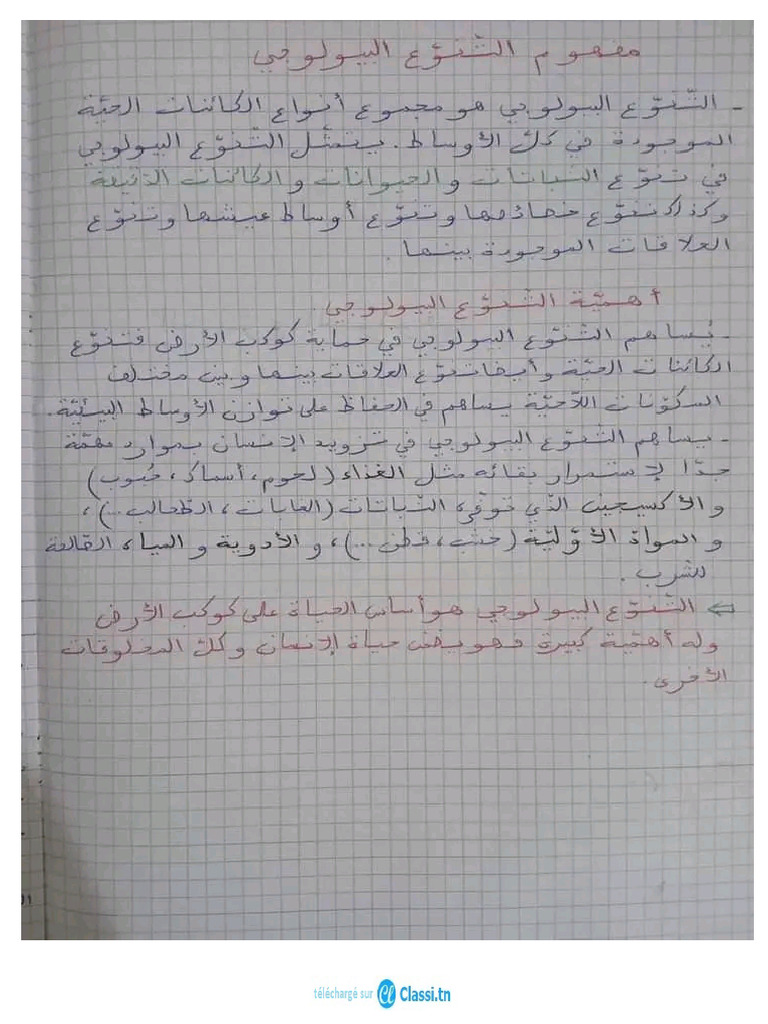 مفهوم التّنوّع البيولوجي
- التّنوّع البيولوجي هو مجموع أنواع الكائنات الحيّة
الموجودة في كلّ الأوساط. يتمثّل التّنوّع البيولوجي
في تنوّع النّباتات والحيوانات والكائنات الدّقيقة
وكذلك تنوّع خصائصها وتنوّع أوساط عيشها وتنوّع
العلاقات الموجودة بينها.
أهمّيّة التّنوّع البيولوجي
- يُساهم التّنوّع البيولوجي في حماية كوكب الأرض فتنوّع
الكائنات الحيّة وأيضا تنوّع العلاقات بينها وبين مختلف
المكوّنات اللاّحيّة يساهم في الحفاظ على توازن الأوساط البيئيّة.
- يساهم التّنوّع البيولوجي في تزويد الإنسان بموارد مهمّة
جدّا لاستمرار بقائه مثل الغذاء (لحوم، أسماك، حُبوب)
والأكسيجين الذّي توفّره النّباتات (الغابات، الطّحالب..)،
والموادّ الأوّليّة (خشب، قطن...)، والأدوية والمياه القالعة
للشّرب.
⇐ التّنوّع البيولوجي هو أساس الحياة على كوكب الأرض
وله أهمّيّة كبيرة فهو يضمن حياة الإنسان وكلّ المخلوقات
الأخرى.
téléchargé sur Classi.tn